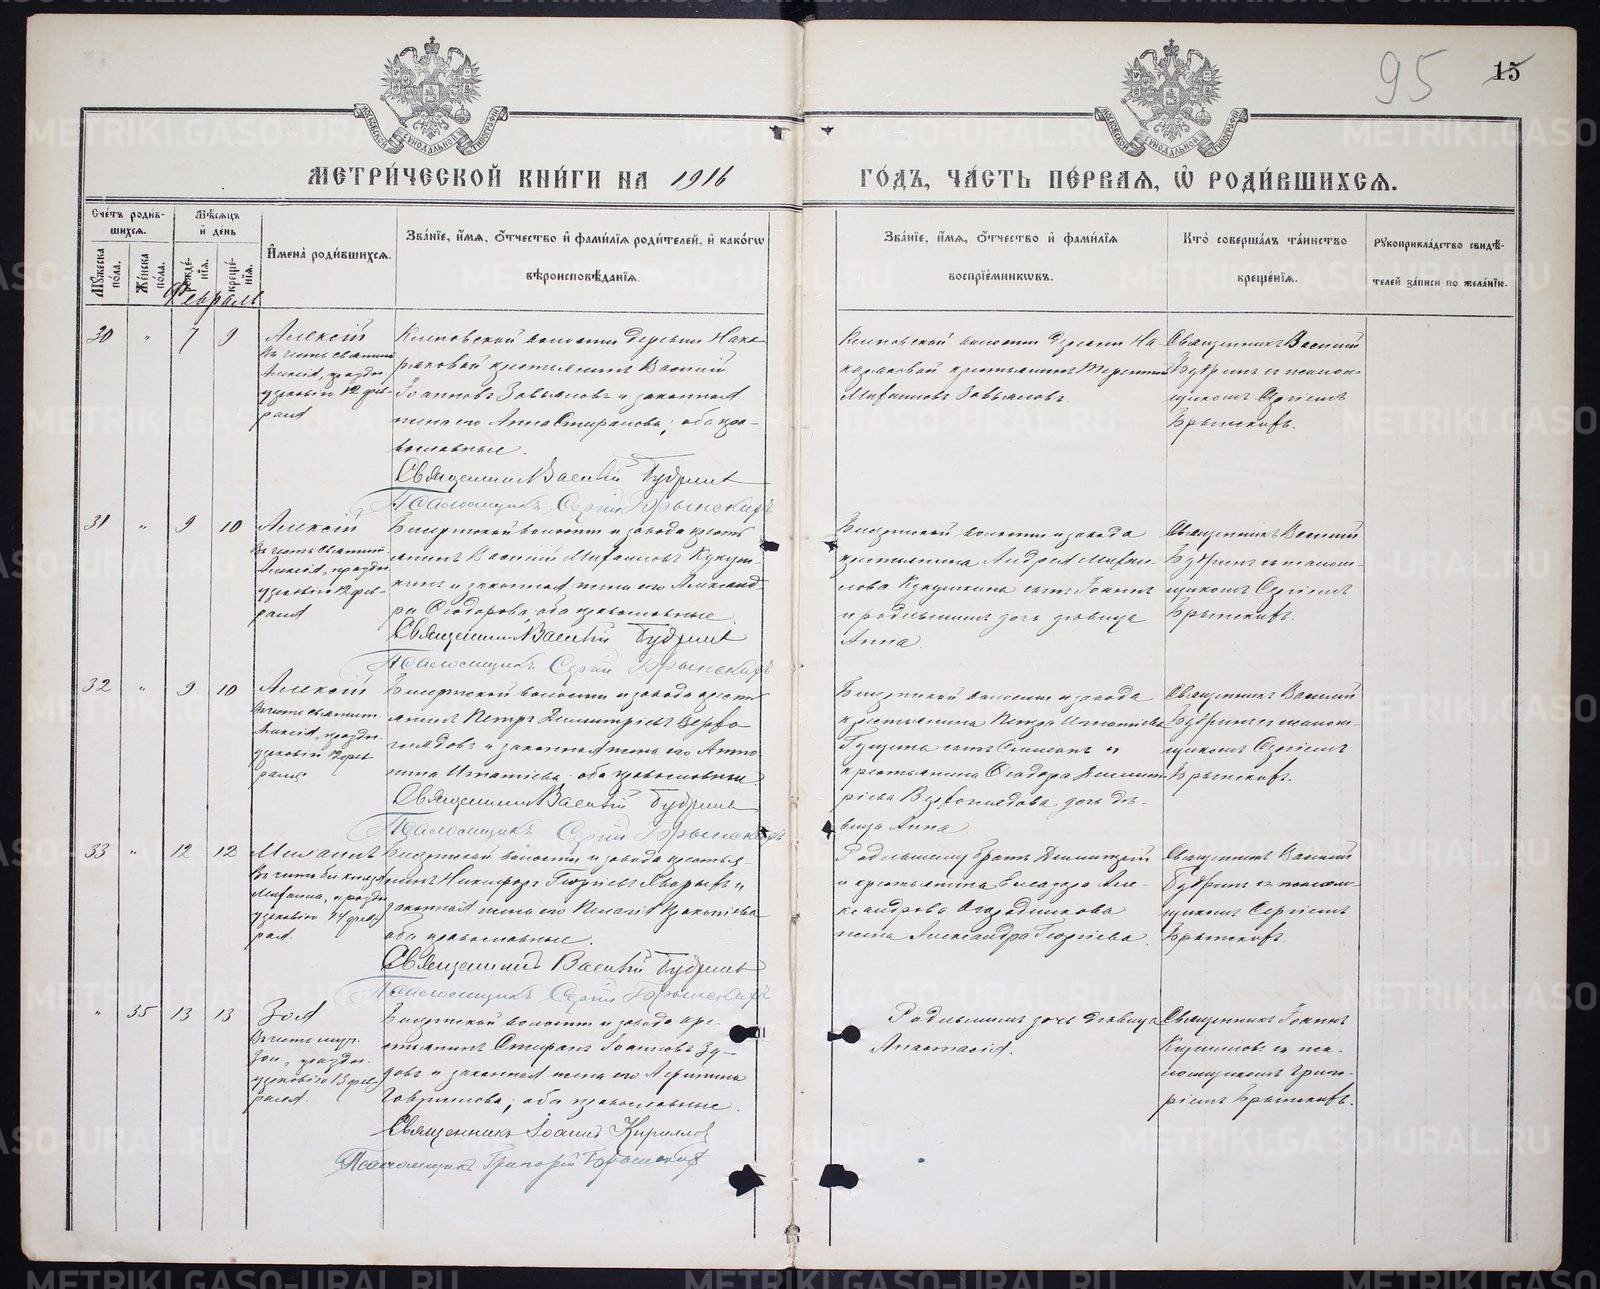 95 15
МЕТРИ́ЧЕСКОЙ КНИ́ГИ НА 1916
ГО́ДЪ, ЧА́СТЬ ПЕ́РВАЯ, Ѡ҆ РОДИ́ВШИХСЯ.
Сче́тъ роди́в-
шихся.
Мѣ́сяцъ
и҆ де́нь
Мꙋ́жеска по́ла.
Же́нска по́ла.
рожде́-нїѧ.
креще́-нїѧ.
И҆мена̀ роди́вшихся.
Зва́нїе, и҆́мя, ѻ҆́тчество и҆ фами́лїя роди́телей, и҆ како́гѡ
вѣроисповѣ́данїя.
Зва́нїе, и҆́мя, ѻ҆́тчество и҆ фами́лїя
воспрїе́мникѡвъ.
Кто̀ соверша́лъ та́инство
креще́нїя.
Рꙋкоприкла́дство свидѣ́-
телей за́писи по жела́нїю.
Февраль
30 " 7 9
Алексій
Въ честь святит.
Алексія, праздн
уемаго 12 фев-
раля
Кленовской волости деревни Нака-
ряковой крестьянинъ Василій
Іоанновъ Завьяловъ и законная
жена его Анна Стефанова; оба пра-
вославные.
Священникъ Василій Будринъ
Псаломщикъ Сергій Брынскихъ
Кленовской волости деревни На
каряковой крестьянинъ Терентій
Михаиловъ Завьяловъ.
Священникъ Василій
Будринъ съ псалом-
щикомъ Сергіемъ
31 " 9 10
Алексій
Въ честь святит.
Алексія, праздн
уемаго 12 фев-
раля
Бисертской волости и завода кресть
янинъ Василій Михаиловъ Кукуш-
кинъ и законная жена его Александ-
ра Ѳеодорова, оба православные.
Священникъ Василій Будринъ
Псаломщикъ Сергій Брынскихъ
Бисертской волости и завода
крестьянина Андрея Михаи-
лова Кукушкина сынъ Іоаннъ
и родившимъ дочь дѣвица
Анна.
Священникъ Василій
Будринъ съ псалом-
щикомъ Сергіемъ
32 " 9 10
Алексій
Въ честь святит.
Алексія, праздн
уемаго 12 фев
раля
Бисертской волости и завода кресть
янинъ Петръ Димитріевъ Верхо
глядовъ и законная жена его Анто
нина Игнатіева; оба православные.
Священникъ Василій Будринъ
Псаломщикъ Сергій Брынскихъ
Бисертской волости и завода
крестьянина Петра Игнатіева
сынъ Симеонъ и
крестьянина Ѳеодора Димит-
ріева Верхоглядова дочь дѣ-
вица Анна.
Священникъ Василій
Будринъ съ псалом-
щикомъ Сергіемъ
33 " 12 12
Михаилъ
Въ честь бл. князя
Михаила, праздн
уемаго 14 февр
раля.
Бисертской волости и завода крестья-
нинъ Никифоръ Георгіевъ и
законная жена его Пелагія Прокопіева
оба православные.
Священникъ Василій Будринъ
Псаломщикъ Сергій Брынскихъ
Родившему братъ Димитрій
и крестьянина Елеазара Але-
ксандрова Огородникова
жена Александра Георгіева.
Священникъ Василій
Будринъ съ псалом-
щикомъ Сергіемъ
" 35 13 13
Зоя
Въ честь муч.
Зои, праздн.
уемаго 13 фев-
раля.
Бисертской волости и завода кре-
стьянинъ Стефанъ Іоанновъ Зу-
довъ и законная жена его Агрипина
Гавриилова; оба православные.
Священникъ Іоаннъ Кирилловъ
Псаломщикъ Григорій Брынскихъ
Родившимъ дочь дѣвица
Анастасія.
Священникъ Іоаннъ
Кирилловъ съ пса-
ломщикомъ Григо-
ріемъ